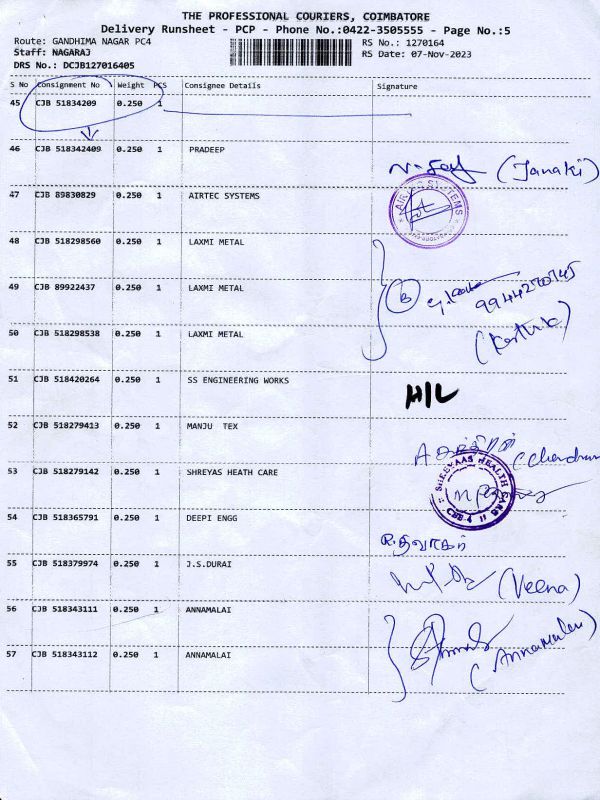 THE PROFESSIONAL COURIERS, COIMBATORE
Delivery Runsheet - PCP - Phone No.:0422-3505555 - Page No.:5
Route: GANDHIMA NAGAR PC4
RS No.: 1270164
Staff: NAGARAJ
RS Date: 07-Nov-2023
DRS No.: DCJB127016405
S No Consignment No Weight PCS Consignee Details Signature
45 CJB 51834209 0.250 1
46 CJB 518342409 0.250 1 PRADEEP
(Janaki)
47 CJB 89830829 0.250 1 AIRTEC SYSTEMS
48 CJB 518298560 0.250 1 LAXMI METAL
49 CJB 89922437 0.250 1 LAXMI METAL
50 CJB 518298538 0.250 1 LAXMI METAL
51 CJB 518420264 0.250 1 SS ENGINEERING WORKS
H/L
52 CJB 518279413 0.250 1 MANJU TEX
53 CJB 518279142 0.250 1 SHREYAS HEATH CARE
SHREYAAS HEALTH CARE
CBE-4
54 CJB 518365791 0.250 1 DEEPI ENGG
55 CJB 518379974 0.250 1 J.S.DURAI
(Veena)
56 CJB 518343111 0.250 1 ANNAMALAI
(Annamalai)
57 CJB 518343112 0.250 1 ANNAMALAI